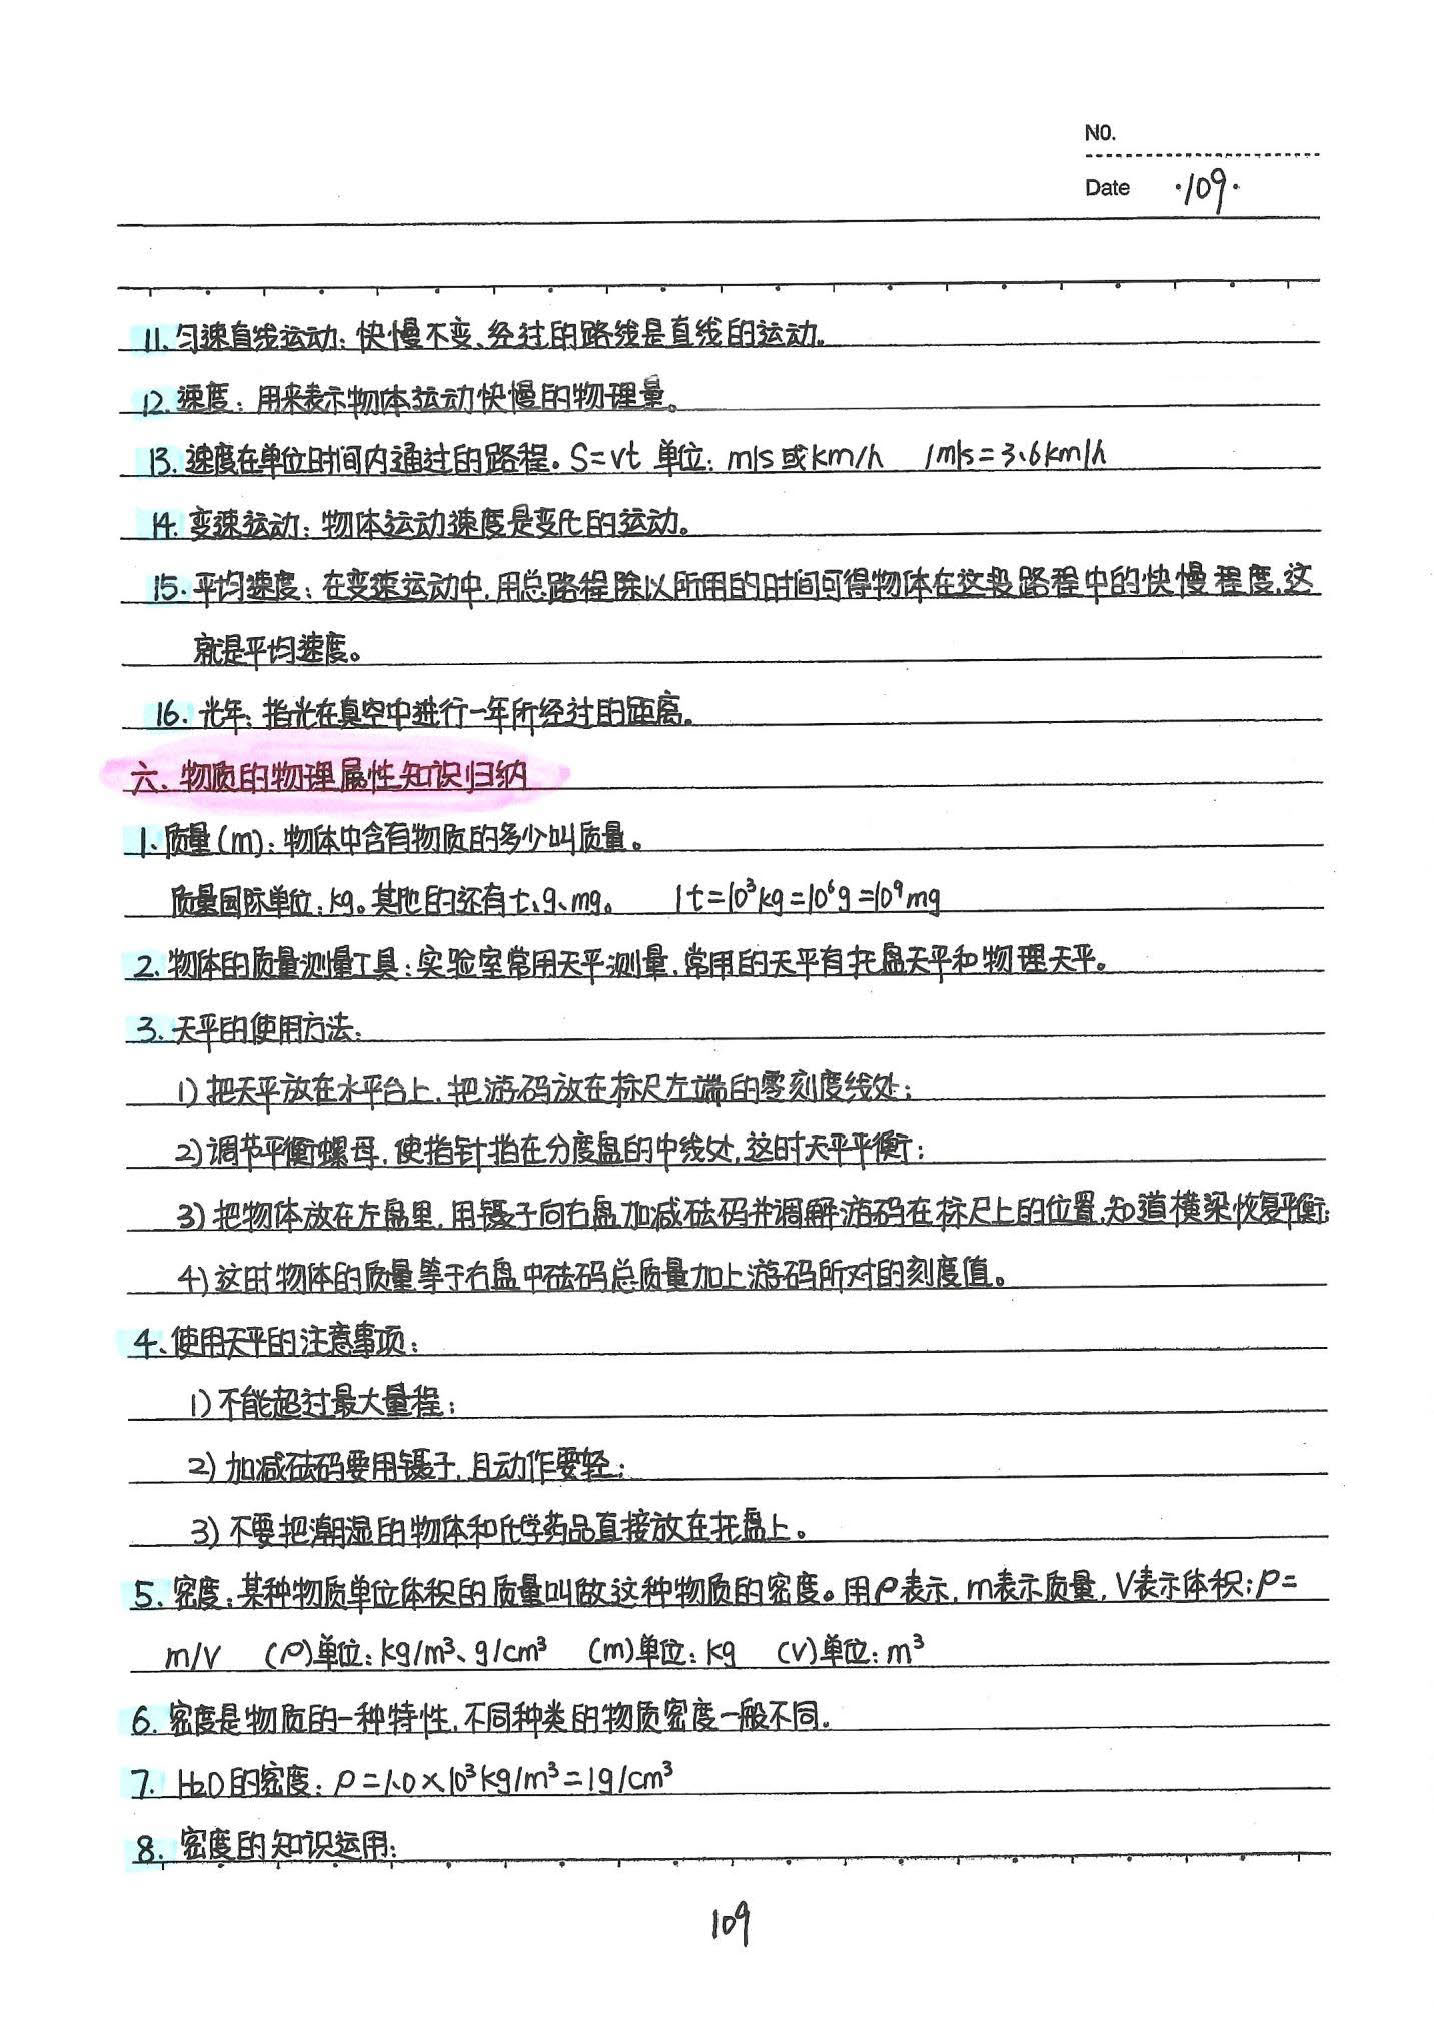 NO.
Date ·109·
11. 匀速直线运动：快慢不变、经过的路线是直线的运动。
12. 速度：用来表示物体运动快慢的物理量。
13. 速度在单位时间内通过的路程。S=vt 单位：m/s或km/h 1m/s=3.6km/h
14. 变速运动：物体运动速度是变化的运动。
15. 平均速度：在变速运动中，用总路程除以所用的时间可得物体在这段路程中的快慢程度，这
就是平均速度。
16. 光年：指光在真空中进行一年所经过的距离。
六、物质的物理属性知识归纳
1、质量(m)：物体中含有物质的多少叫质量。
质量国际单位：kg。其他的还有t、g、mg。 1t=10³kg=10⁶g=10⁹mg
2、物体的质量测量工具：实验室常用天平测量，常用的天平有托盘天平和物理天平。
3、天平的使用方法：
1) 把天平放在水平台上，把游码放在标尺左端的零刻度线处；
2) 调节平衡螺母，使指针指在分度盘的中线处，这时天平平衡；
3) 把物体放在左盘里，用镊子向右盘加减砝码并调解游码在标尺上的位置，知道横梁恢复平衡；
4) 这时物体的质量等于右盘中砝码总质量加上游码所对的刻度值。
4、使用天平的注意事项：
1) 不能超过最大量程；
2) 加减砝码要用镊子，且动作要轻；
3) 不要把潮湿的物体和化学药品直接放在托盘上。
5、密度：某种物质单位体积的质量叫做这种物质的密度。用ρ表示，m表示质量，V表示体积：ρ=
m/v (ρ)单位：kg/m³、g/cm³ (m)单位：kg (V)单位：m³
6. 密度是物质的一种特性，不同种类的物质密度一般不同。
7. H₂O的密度：ρ=1.0×10³kg/m³=1g/cm³
8. 密度的知识运用：
109